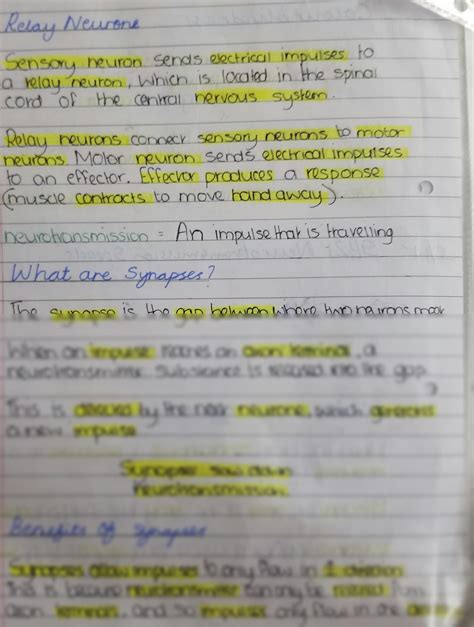 Relay Neurone
Sensory neuron sends electrical impulses to
a relay neuron, which is located in the spinal
cord of the central nervous system.
Relay neurons connect sensory neurons to motor
neurons. Motor neuron sends electrical impulses
to an effector. Effector produces a response
(muscle contracts to move hand away).
neurotransmission = An impulse that is travelling
What are Synapses?
The synapse is the gap between where two neurons meet
When an impulse reaches an axon terminal, a
neurotransmitter substance is released into the gap
This is by the next neurone, which generates
a new impulse
Synapses slow down
neurotransmission.
Benefits of Synapses
Synapses allow impulses to only flow in 1 direction
This is because neurotransmitter can only be released from
axon terminals, and so impulses only flow in the